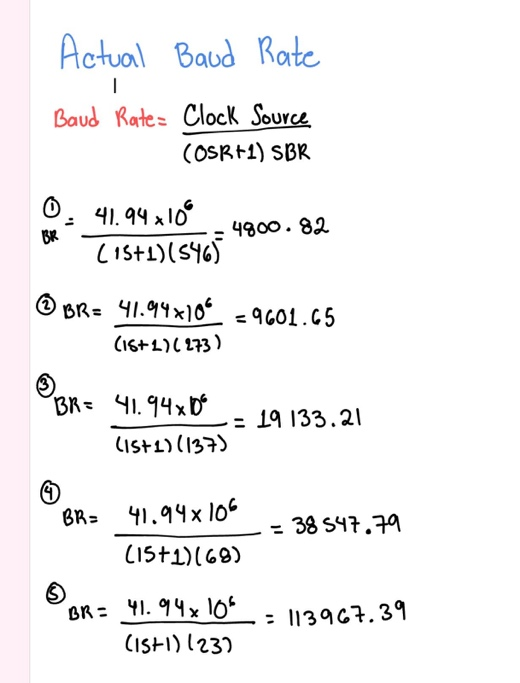 Actual Baud Rate
Baud Rate = Clock Source
(OSR+1) SBR
① BR = 41.94 x 10⁶
(15+1)(546) = 4800.82
② BR = 41.94x10⁶
(15+1)(273) = 9601.65
③ BR = 41.94 x 10⁶
(15+1)(137) = 19133.21
④ BR = 41.94 x 10⁶
(15+1)(68) = 38547.79
⑤ BR = 41.94 x 10⁶
(15+1)(23) = 113967.39